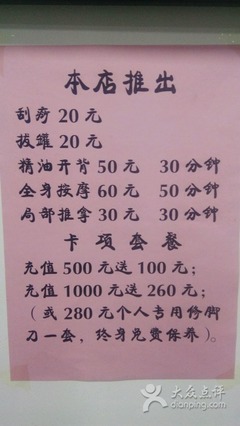 本店推出
刮痧 20 元
拔罐 20 元
精油开背 50 元 30 分钟
全身按摩 60 元 50 分钟
局部推拿 30 元 30 分钟
卡项套餐
充值 500 元送 100 元；
充值 1000 元送 260 元；
（或 280 元个人专用修脚
刀一套，终身免费保养）。
大众点评
dianping.com